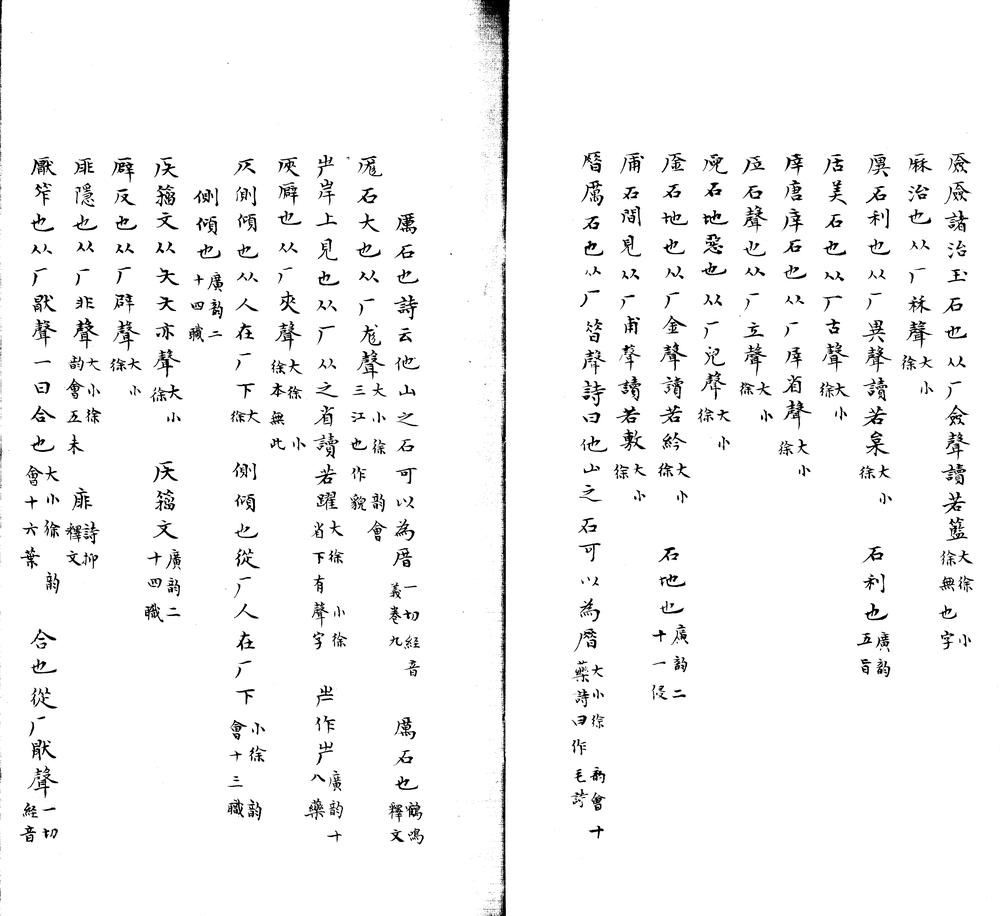 厱厱諸治玉石也从厂僉聲讀若籃大徐小徐無也字
厤治也从厂秝聲大小徐
㕈石利也从厂異聲讀若枲大小徐　石利也廣韵五旨
㕆美石也从厂古聲大小徐
㕑唐㕑石也从厂屖省聲大小徐
厏石聲也从厂立聲大小徐
石地惡也从厂兒聲大小徐
㕋石地也从厂金聲讀若紟大小徐　石地也廣韵二十一侵
石間見从厂甫聲讀若敷大小徐
厝厲石也从厂昔聲詩曰他山之石可以為厝大小徐　韵會十藥詩曰作毛詩
厲石也詩云他山之石可以為厝一切經音義卷九　厲石也鶴鳴釋文
厖石大也从厂尨聲大小徐　韵會三江也作貌
屵岸上見也从厂从之省讀若躍大徐　小徐省下有聲字　屵作屵廣韵十八藥
㕉廦也从厂夾聲大徐　小徐本無此
仄側傾也从人在厂下大徐　側傾也從厂人在厂下小徐　韵會十三職
側傾也廣韵二十四職
𠨮籀文从夨夨亦聲大小徐　𠨮籀文廣韵二十四職
廦反也从厂辟聲大小徐
厞隱也从厂非聲大小徐　韵會五未　厞詩抑釋文
厭笮也从厂猒聲一曰合也大小徐　韵會十六葉　合也從厂猒聲一切經音